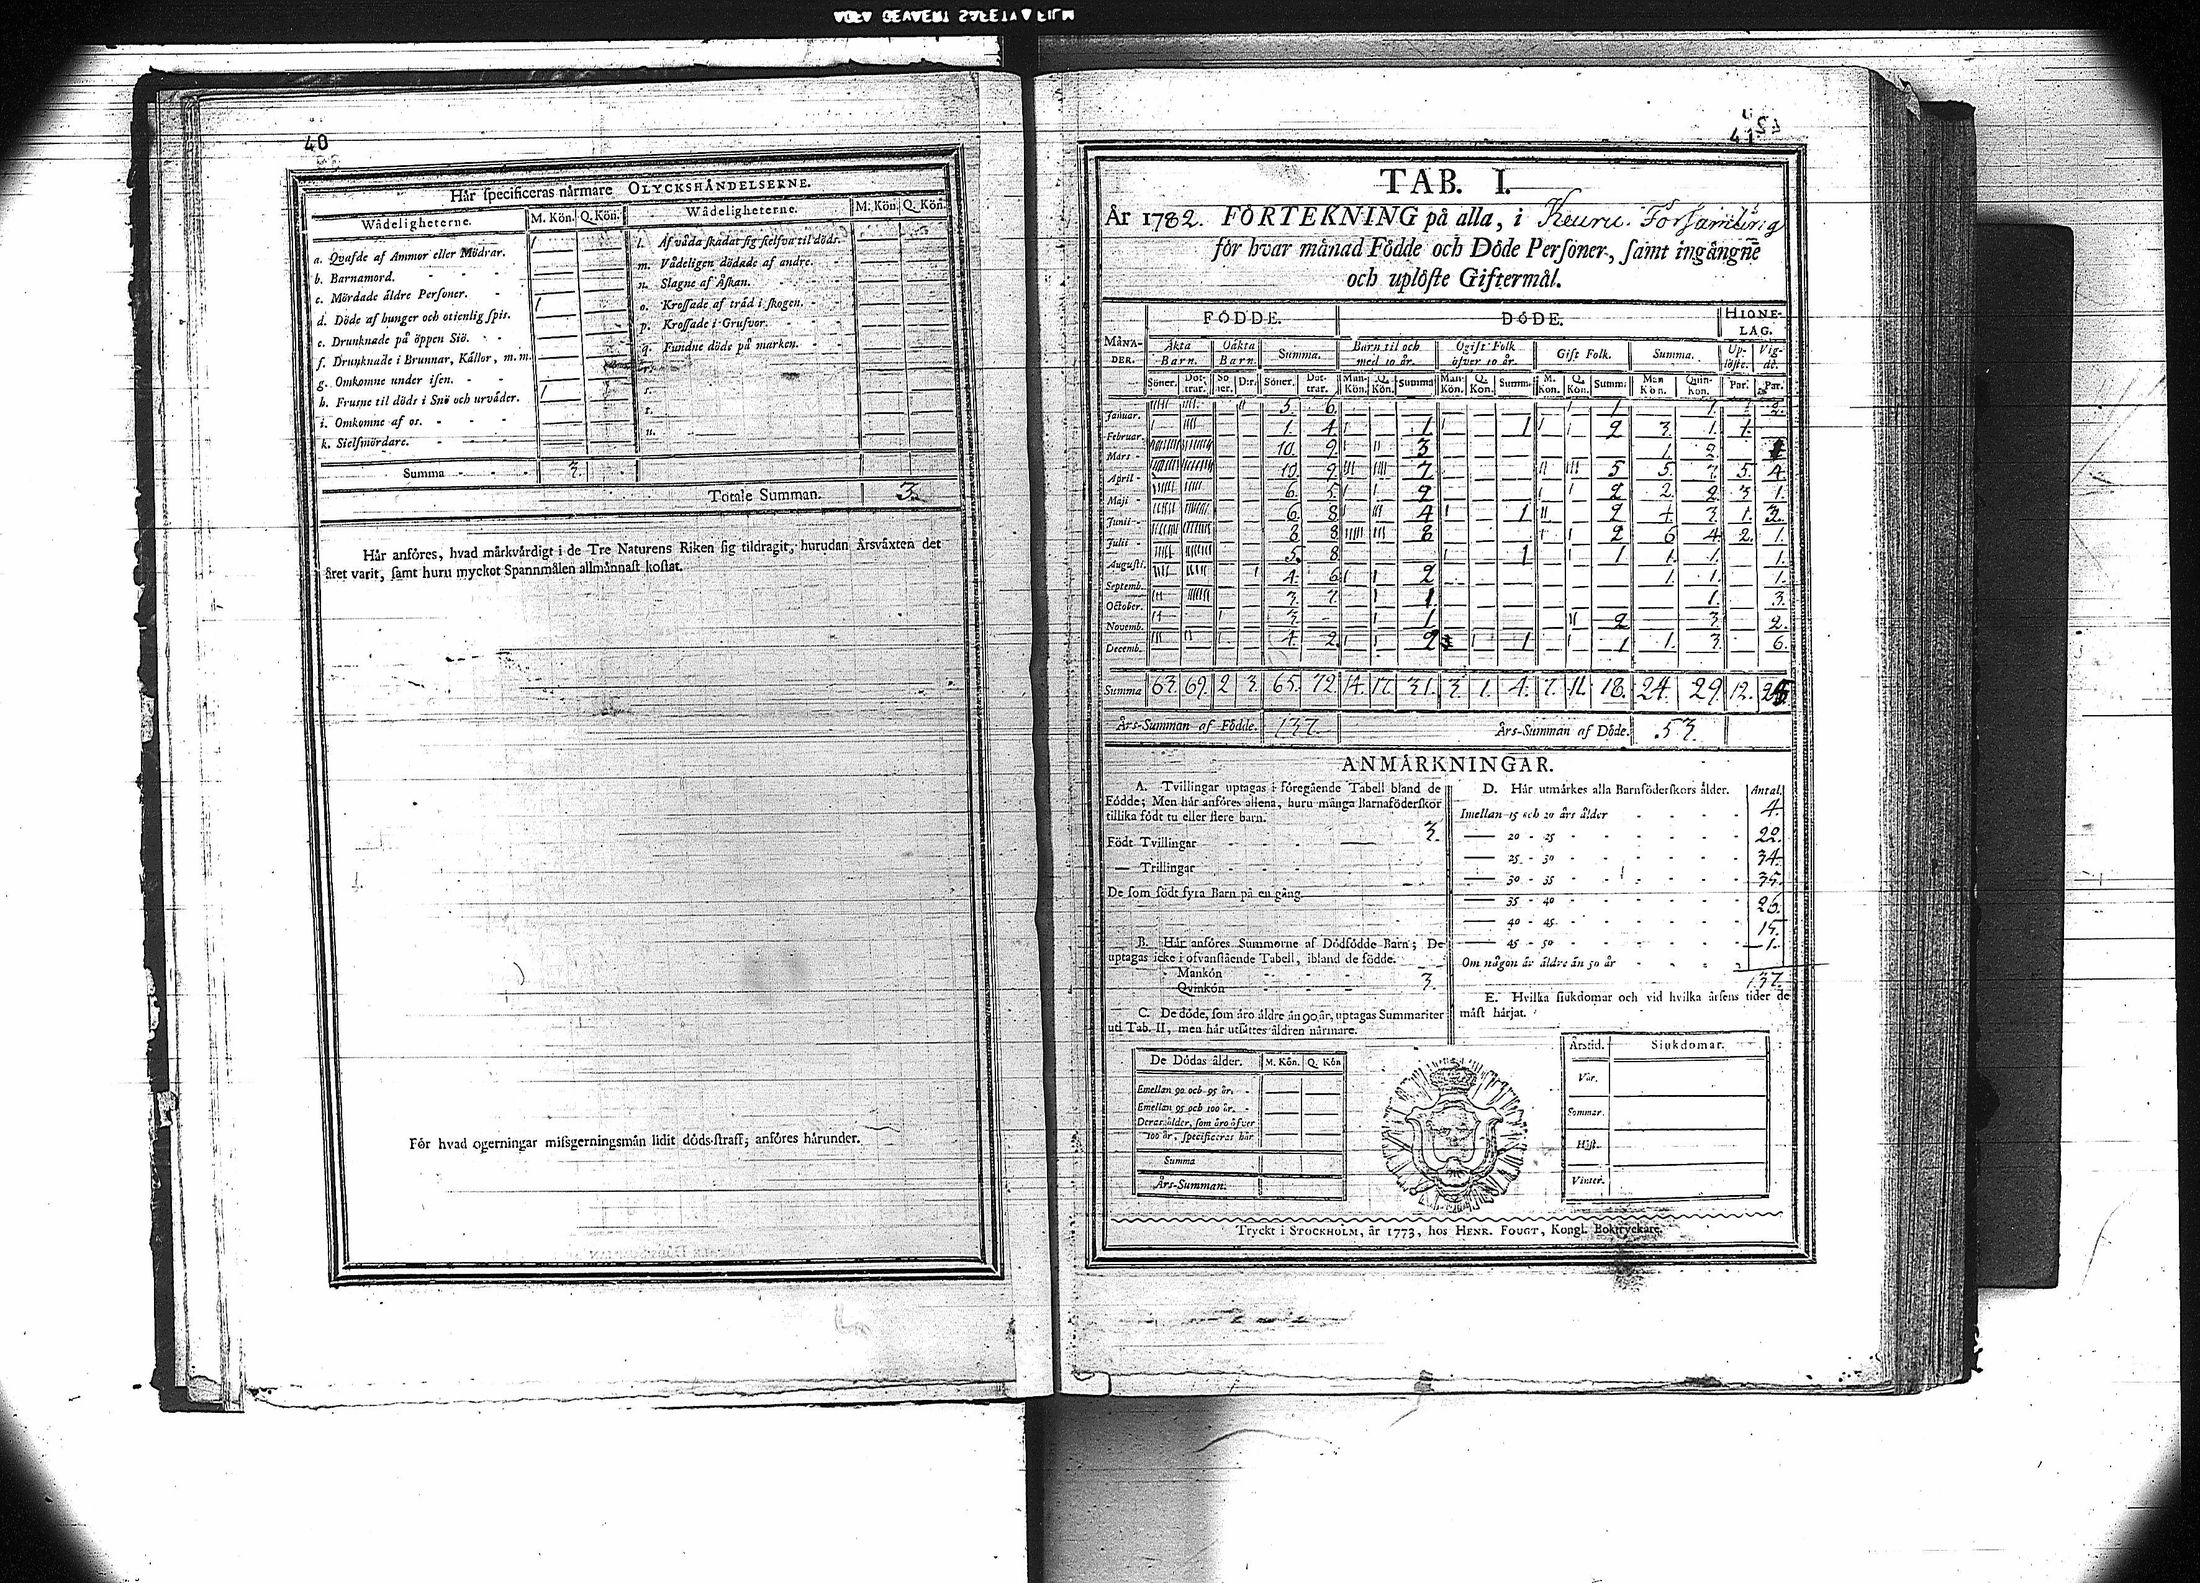 40
Hår specificeras nårmare OLYCKSHÅNDELSERNE.
Wådeligheterne. M. Kön. Q. Kön. Wådeligheterne. M. Kön. Q. Kön.
a. Qvafde af Ammor eller Mödrar. 1
b. Barnamord.
c. Mördade äldre Personer.
d. Döde af hunger och otienlig spis. 1
e. Drunknade på öppen Siö.
f. Drunknade i Brunnar, Källor, m. m.
g. Omkomne under isen.
h. Frusne til döds i Snö och urväder. 1
i. Omkomne af os.
k. Sielfmördare.
l. Af våda skadat sig sielfva til döds.
m. Vådeligen dödade af andre.
n. Slagne af Åskan.
o. Krossade af träd i skogen.
p. Krossade i Grufvor.
q. Fundne döde på marken.
s.
t.
u.
Summa 3.
Totale Summan. 3.
Hår anföres, hvad märkvärdigt i de Tre Naturens Riken sig tildragit, hurudan Årsväxten det
året varit, samt huru myckot Spannmålen allmännast kostat.
För hvad ogerningar missgerningsmän lidit döds-straff, anföres härunder.
41
TAB. I.
År 1782. FÖRTEKNING på alla, i Keuru Församling
för hvar månad Födde och Döde Personer, samt ingångne
och uplöste Giftermål.
MÅNADER. FÖDDE. DÖDE. HIONELAG.
Äkta Barn. Oäkta Barn. Summa. Barn til och med 10 år. Ogift Folk öfver 10 år. Gift Folk. Summa. Uplöste. Vigde.
Söner. Döttrar. Söner. D:r. Söner. Döttrar. Mankön. Q. Kön. Summa Mankön. Q. Kön. Summ. M. Kön. Q. Kön. Summ. Man Kön. Quinkön. Par. Par.
Januar. 5. 6. 1 1. 2.
Februar. 1. 4. 1 1 2 3. 1. 1.
Mars 10. 9. 3 1. 2.
April 10. 9. 7 5 5. 7. 5. 4.
Maji 6. 5. 2 2 2. 2 3 1.
Junii 6. 8 4 1 2 4. 3. 1. 3.
Julii 8 8 8 2 6 4 2. 1.
Augusti. 5. 8 1 1 1. 1. 1.
Septemb. 4. 6. 2 1. 1. 1.
October. 3. 7. 1 1. 3.
Novemb. 3. 1 2 3. 2.
Decemb. 4. 2. 2 1 1 1. 3. 6.
Summa 63. 69. 2 3. 65. 72 14. 17. 31. 3 1. 4. 7. 11. 18. 24. 29. 12.
Års-Summan af Födde. 137. Års-Summan af Döde. 53.
ANMÄRKNINGAR.
A. Tvillingar uptagas i föregående Tabell bland de
Födde; Men här anföres allena, huru många Barnaföderskor
tillika födt tu eller flere barn.
Födt Tvillingar 3.
— Trillingar
De som födt fyra Barn på en gång.
B. Här anföres Summorne af Dödfödde Barn; De
uptagas icke i ofvanstående Tabell, ibland de födde.
Mankön
Qvinkön 3.
C. De döde, som äro äldre än 90 år, uptagas Summariter
uti Tab. II, men här utsättes åldren närmare.
De Dödas ålder. M. Kön. Q. Kön
Emellan 90 och 95 år.
Emellan 95 och 100 år.
Deras ålder, som äro öfver
100 år, specificeras här
Summa
Års-Summan.
D. Här utmärkes alla Barnföderskors ålder. Antal.
Imellan 15 och 20 års ålder 4.
20 - 25 22.
25 - 30 34.
30 - 35 35.
35 - 40 26.
40 - 45 15.
45 - 50 1.
Om någon är äldre än 50 år
137.
E. Hvilka siukdomar och vid hvilka årsens tider de
mäst härjat.
Årstid. Siukdomar.
Vår.
Sommar.
Höst.
Vinter.
Tryckt i STOCKHOLM, år 1773, hos HENR. FOUGT, Kongl. Boktryckare.